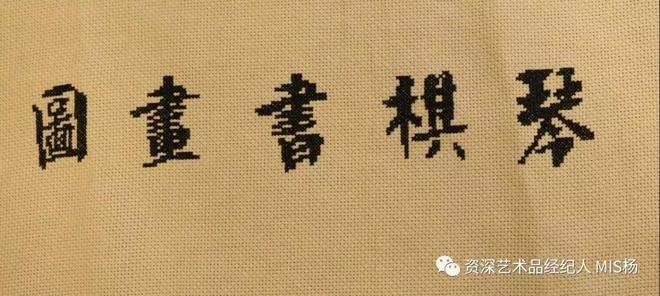 琴棋書畫圖
资深艺术品经纪人 MIS杨